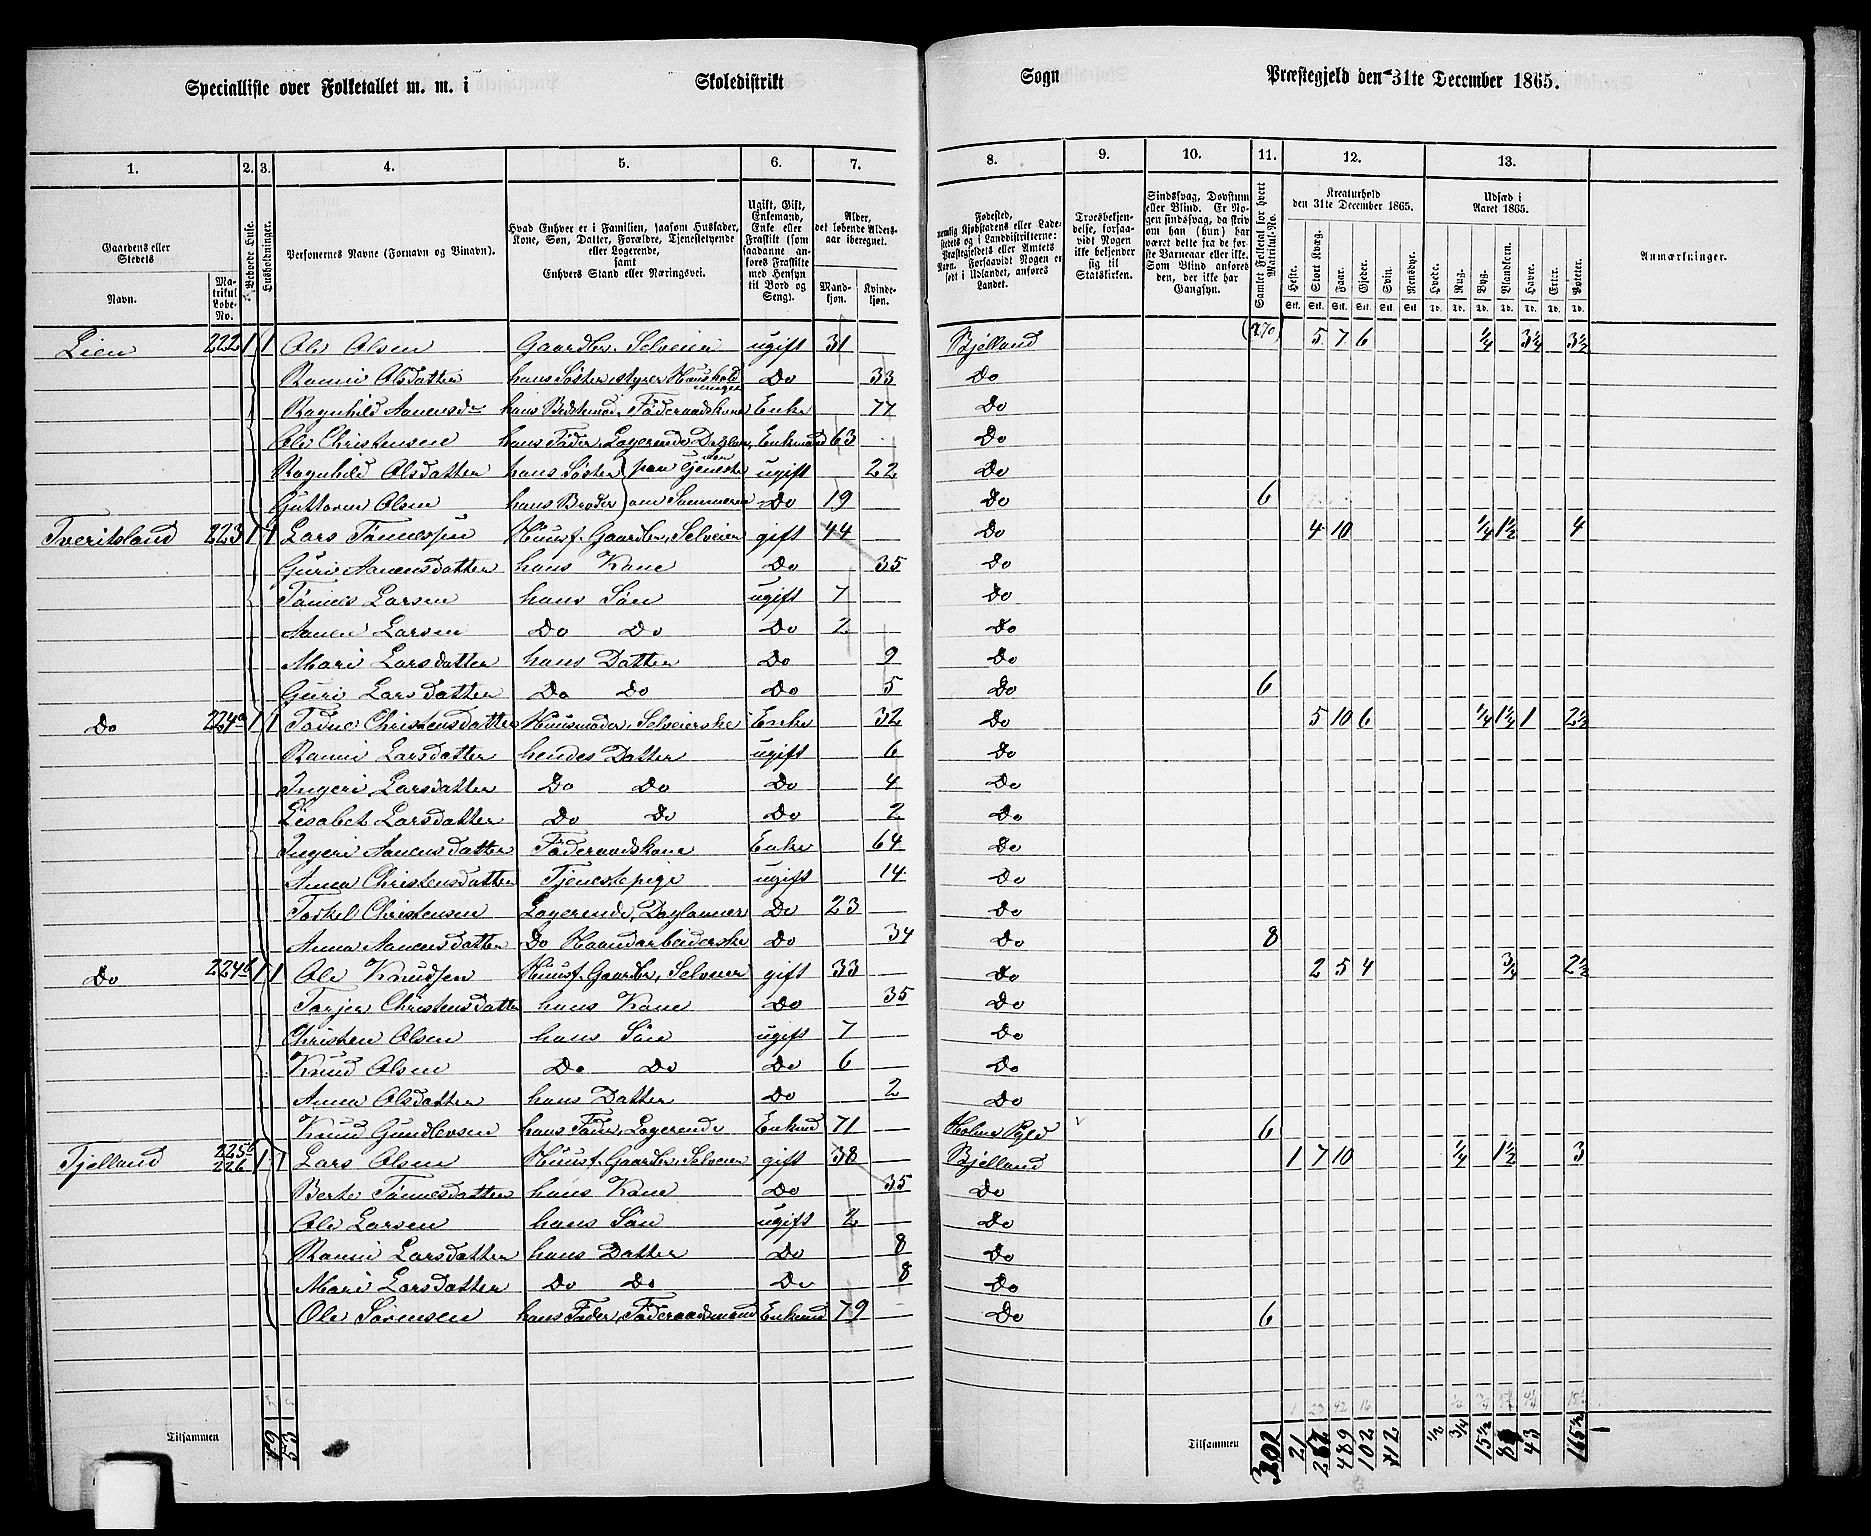 Specialliste over Folketallet m. m. i Skoledistrikt Sogn Præstegjeld den 31te December 1865.
1. 2. 3. 4. 5. 6. 7. 8. 9. 10. 11. 12. 13.
Gaardens eller Stedets
Navn.
Matrikul Løbe-No.
Beboede Huse.
Husholdninger.
Personernes Navne (Fornavn og Binavn).
Hvad Enhver er i Familien, saasom Husfader, Kone, Søn, Datter, Forældre, Tjenestetyende eller Logerende, samt Enhvers Stand eller Næringsvei.
Ugift, Gift, Enkemand, Enke eller Fraskilte (som saadanne anføres Fraskilte med Hensyn til Bord og Seng).
Alder, det løbende Aldersaar iberegnet.
Mandkjøn. Kvindekjøn.
Fødested, nemlig Kjøbstadens eller Ladestedets og i Landdistrikterne: Præstegjeldets eller Amtets Navn. Forsaavidt Nogen er født i Udlandet, anføres Landet.
Troesbekjendelse, forsaavidt Nogen ikke bekjender sig til Statskirken.
Sindssvag, Døvstum eller Blind. Er Nogen sindssvag, da skriv om han (hun) har været dette fra de første Barneaar eller ikke. Som Blind anføres den, der ikke har Gangsyn.
Samlet Folketal for hvert Matrikul-No.
Kreaturhold den 31te December 1865.
Heste. Stort Kvæg. Faar. Gjeder. Svin. Rensdyr.
Udsæd i Aaret 1865.
Hvede. Rug. Byg. Blandkorn. Havre. Erter. Poteter.
Anmærkninger.
Lien 222 1 1 Ole Olsen Gaardbr. Selveier ugift 31 Bjelland 5 7 6 1/4 3 1/4 3 1/2
Ranni Olsdatter hans Søster, styrer Husholdningen Do 33 Do
Ragnhild Aanensdr hans Bedstemod. Føderaadskone Enke 77 Do
Ole Christensen hans Fader, Logerende Dagløn. Enkemand 63 Do
Ragnhild Olsdatter hans Søster ugift 22 Do
Guttorm Olsen hans Broder om Sommeren Do 19 Do 6
Tveitsland 223 1 1 Lars Tønnesen Huusf. Gaardbr, Selveier gift 44 Do 4 10 1/4 1 1/2 4
Guri Aanensdatter hans Kone Do 35 Do
Tønnes Larsen hans Søn ugift 7 Do
Aanen Larsen Do Do Do 2 Do
Mari Larsdatter hans Datter Do 9 Do
Guri Larsdatter Do Do Do 5 Do 6
Do 224a 1 1 Todne Christensdatter Huusmoder, Selveierske Enke 32 Do 5 10 6 1/4 1 1/4 1 2 1/2
Ranni Larsdatter hendes Datter ugift 6 Do
Ingeri Larsdatter Do Do Do 4 Do
Lisabet Larsdatter Do Do Do 2 Do
Ingeri Aanensdatter Føderaadskone Enke 64 Do
Anna Christensdatter Tjenestepige ugift 14 Do
Torkel Christensen Logerende, Daglønner Do 23 Do
Anna Aanensdatter Do Haandarbeiderske Do 34 Do 8
Do 224b 1 1 Ole Knudsen Huusf. Gaardbr, Selveier gift 33 Do 2 5 4 3/4 2 1/2
Torjer Christensdatter hans Kone Do 35 Do
Christen Olsen hans Søn ugift 7 Do
Knud Olsen Do Do Do 6 Do
Anna Olsdatter hans Datter Do 2 Do
Knud Gundlevsen hans Fader, Logerende Enkmd 71 Holme Pgld 6
Tjelland 225b 226 1 1 Lars Olsen Huusf. Gaardbr, Selveier gift 38 Bjelland 1 7 10 1/4 1 1/2 3
Berte Tønnesdatter hans Kone Do 35 Do
Ole Larsen hans Søn ugift 2 Do
Ranni Larsdatter hans Datter Do 8 Do
Mari Larsdatter Do Do Do 8 Do
Ole Sørensen hans Fader, Føderaadsmand Enkmd 79 Do 6
Tilsammen 49 53 Tilsammen 302 21 489 102 1/2 3/4 15 1/2 43 165 1/2